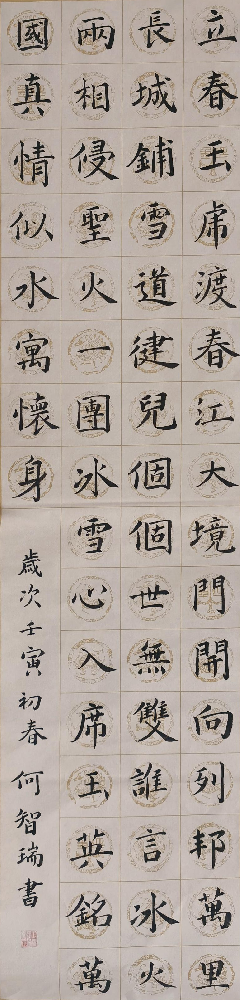 立春玉虎渡春江大境門開向列邦萬里
長城鋪雪道健兒個個世無雙誰言冰火
兩相侵聖火一團冰雪心入席玉英銘萬
國真情似水寓懷身
歲次壬寅初春何智瑞書